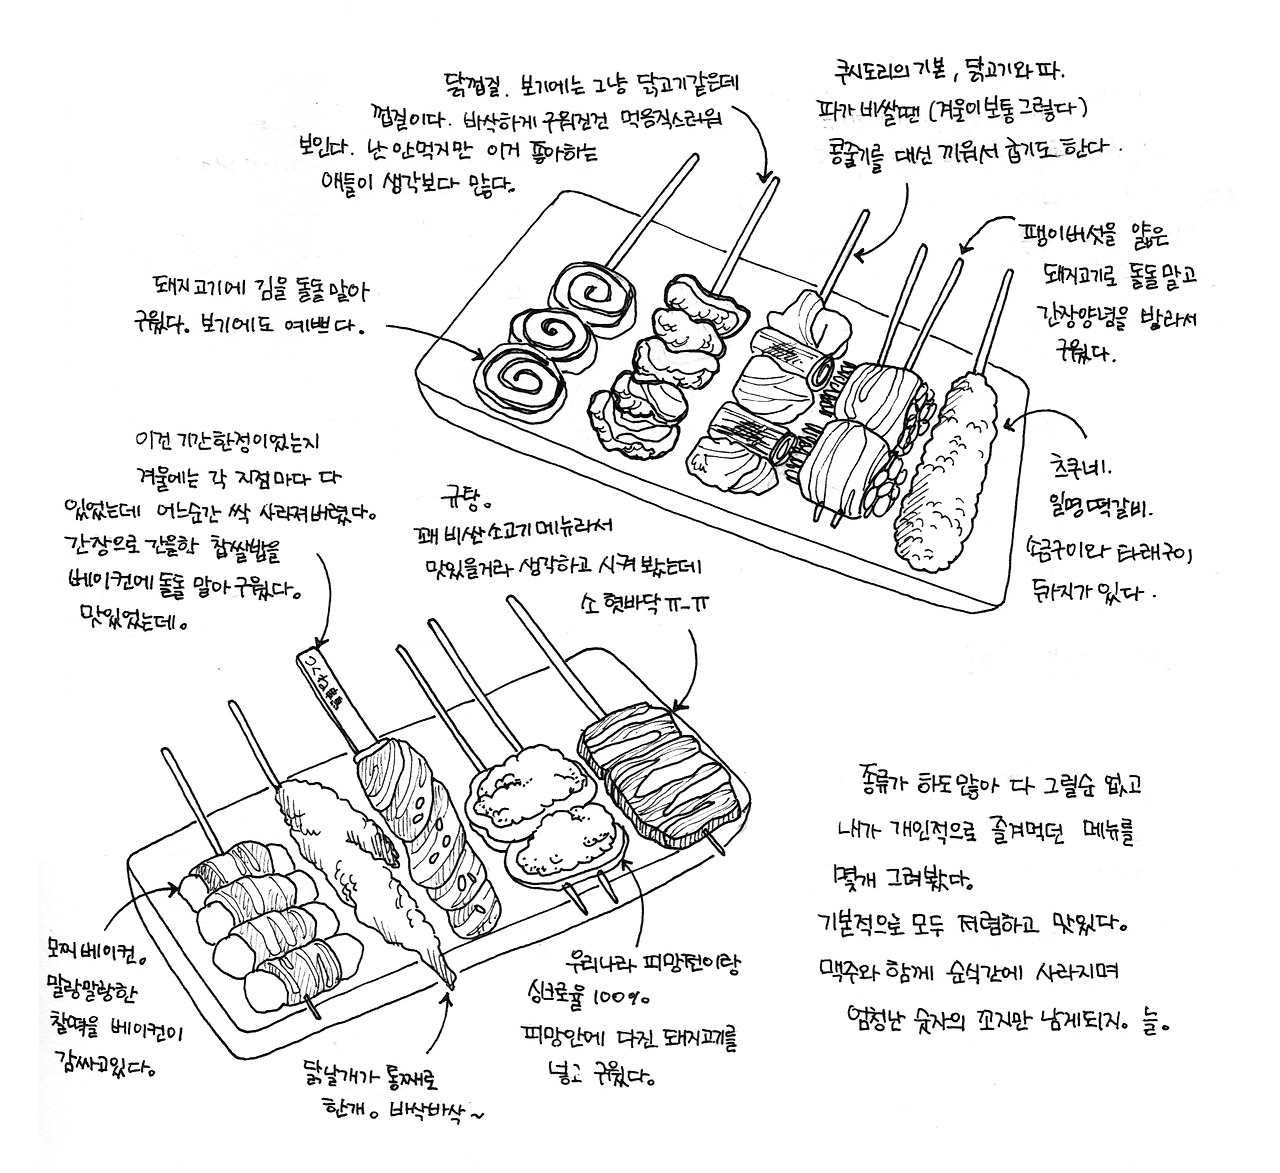 닭껍질. 보기에는 그냥 닭고기같은데
껍질이다. 바삭하게 구워진건 먹음직스러워
보인다. 난 안먹지만 이거 좋아하는
애들이 생각보다 많다.
쿠시도리의 기본, 닭고기와 파.
파가 비쌀땐 (겨울이 보통 그렇다)
콩줄기를 대신 끼워서 굽기도 한다.
팽이버섯을 얇은
돼지고기로 돌돌 말고
간장양념을 발라서
구웠다.
돼지고기에 김을 돌돌 말아
구웠다. 보기에도 예쁘다.
츠쿠네.
일명 떡갈비.
소금구이와 타래구이,
두가지가 있다.
이건 기간한정이었는지
겨울에는 각 지점마다 다
있었는데 어느순간 싹 사라져버렸다.
간장으로 간을한 찹쌀밥을
베이컨에 돌돌 말아 구웠다.
맛있었는데.
규탕.
꽤 비싼 소고기 메뉴라서
맛있을거라 생각하고 시켜 봤는데
소 혓바닥 ㅠ_ㅠ
모찌 베이컨.
말랑말랑한
찰떡을 베이컨이
감싸고있다.
닭날개가 통째로
한개. 바삭바삭~
우리나라 피망전이랑
싱크로율 100%
피망안에 다진 돼지고기를
넣고 구웠다.
종류가 하도 많아 다 그릴순 없고
내가 개인적으로 즐겨먹던 메뉴를
몇개 그려봤다.
기본적으로 모두 저렴하고 맛있다.
맥주와 함께 순식간에 사라지며
엄청난 숫자의 꼬지만 남게되지. 늘.